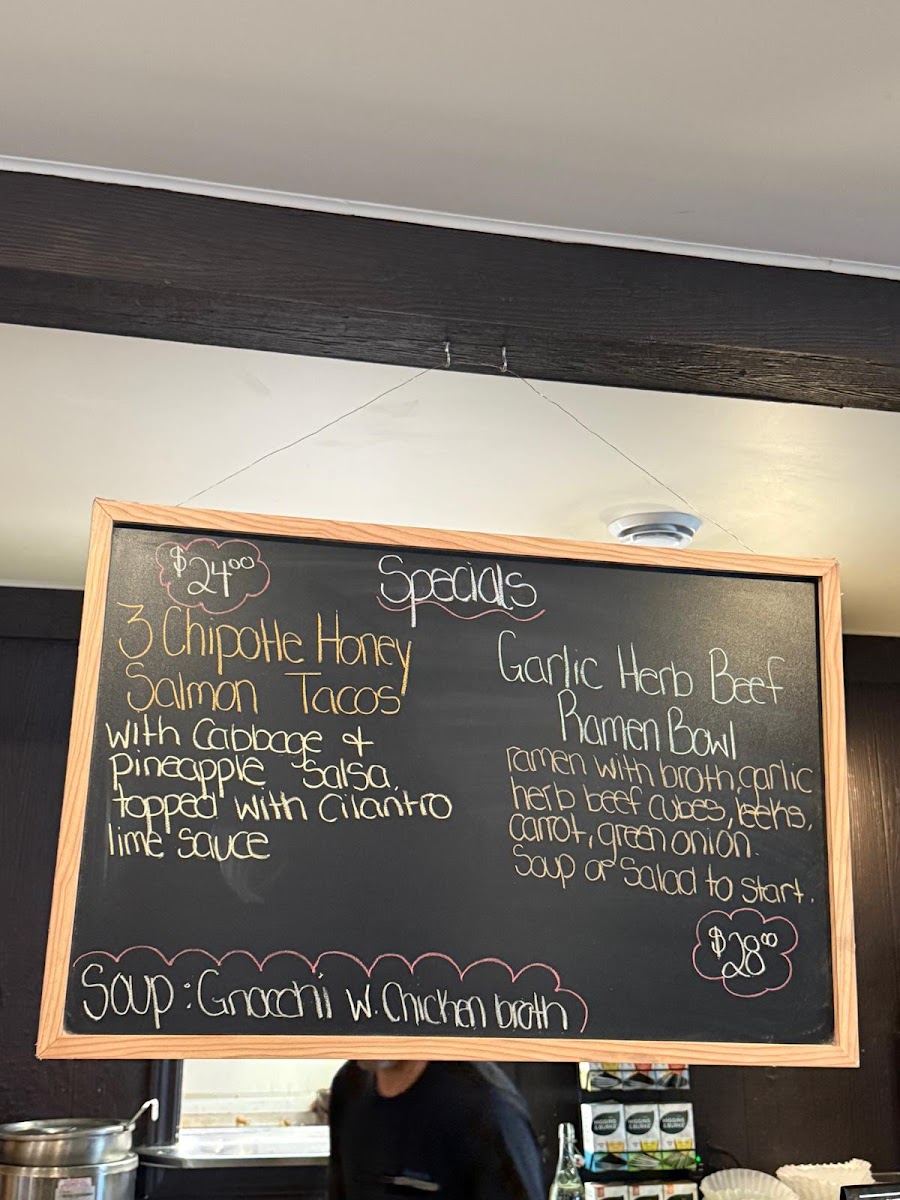 Specials
$24.00
3 Chipotle Honey
Salmon Tacos
with Cabbage &
pineapple Salsa,
topped with Cilantro
lime sauce
Garlic Herb Beef
Ramen Bowl
ramen with broth, garlic
herb beef cubes, leeks,
carrot, green onion.
Soup or Salad to start.
$28.00
Soup: Gnocchi w. Chicken broth
HIGGINS
& BURKE
HIGGINS
& BURKE
HIGGINS
& BURKE